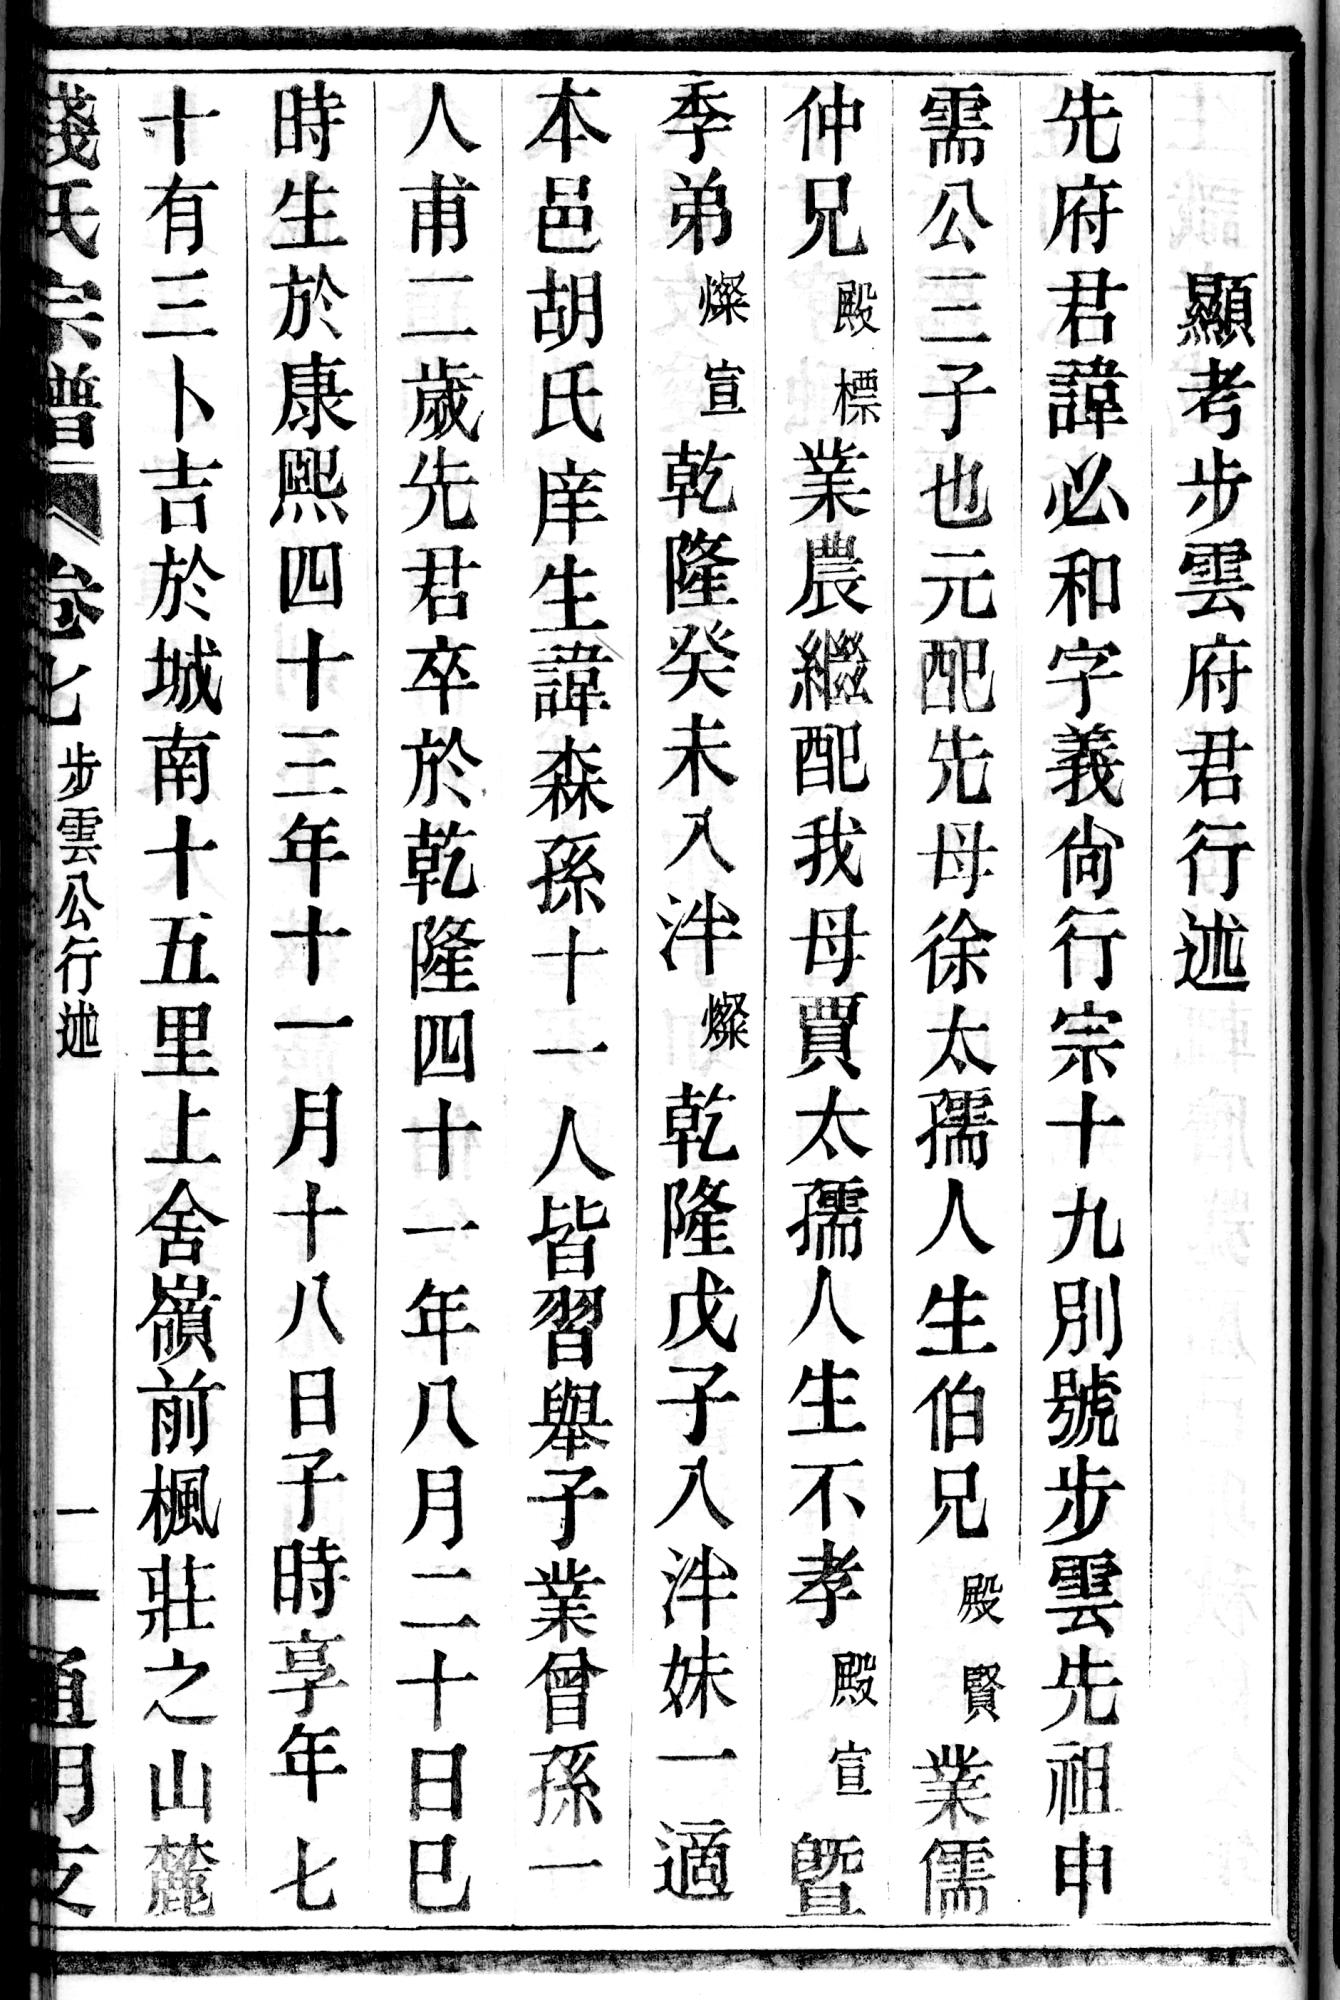 顯考步雲府君行述
先府君諱必和字義尙行宗十九別號步雲先祖申
需公三子也元配先母徐太孺人生伯兄殿賢業儒
仲兄殿標業農繼配我母賈太孺人生不孝殿宣曁
季弟燦宣乾隆癸未入泮燦乾隆戊子入泮妹一適
本邑胡氏庠生諱森孫十一人皆習舉子業曾孫一
人甫二歲先君卒於乾隆四十一年八月二十日巳
時生於康熙四十三年十一月十八日子時享年七
十有三卜吉於城南十五里上舍嶺前楓莊之山麓
錢氏宗譜 卷七 步雲公行述 一 通明支